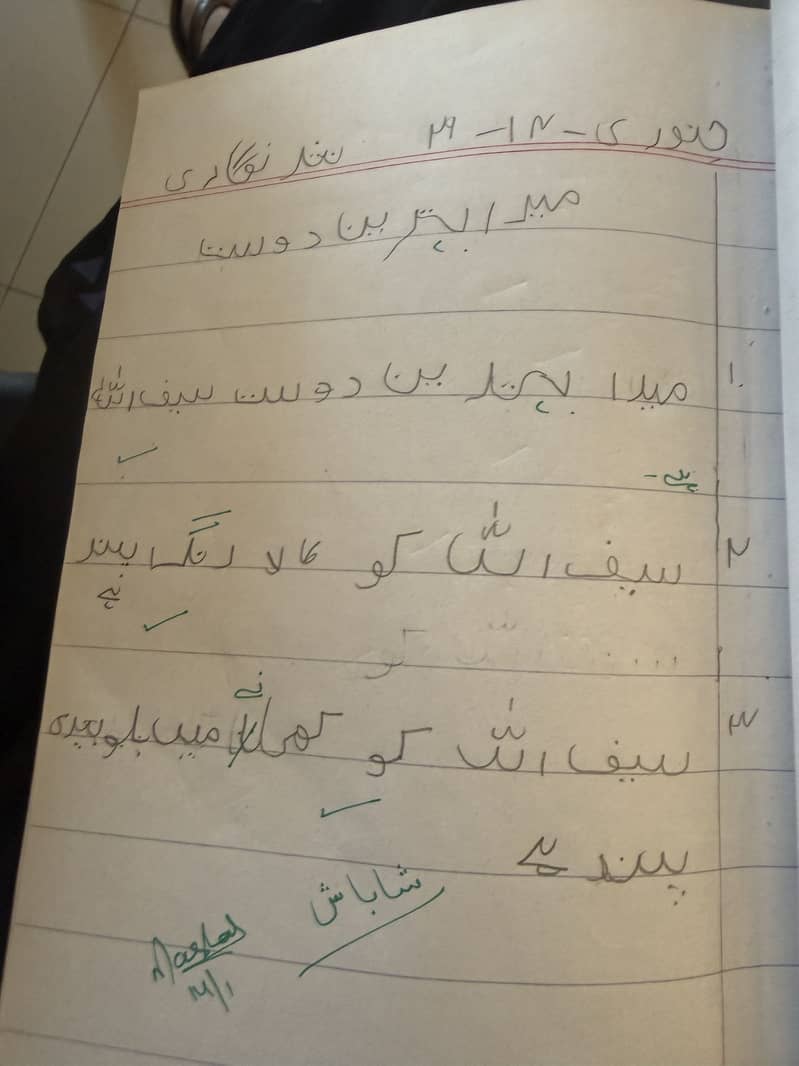 جنوری - ۱۲ - ۲۴ نثر نگاری
میرا بہترین دوست
۱. میرا بہترین دوست سیف اللہ
ہے -
۲ سیف اللہ کو کالا رنگ پسند
ہے
سیف اللہ کو
۳ سیف اللہ کو کھانے میں پلو
پسند ہے
شاباش